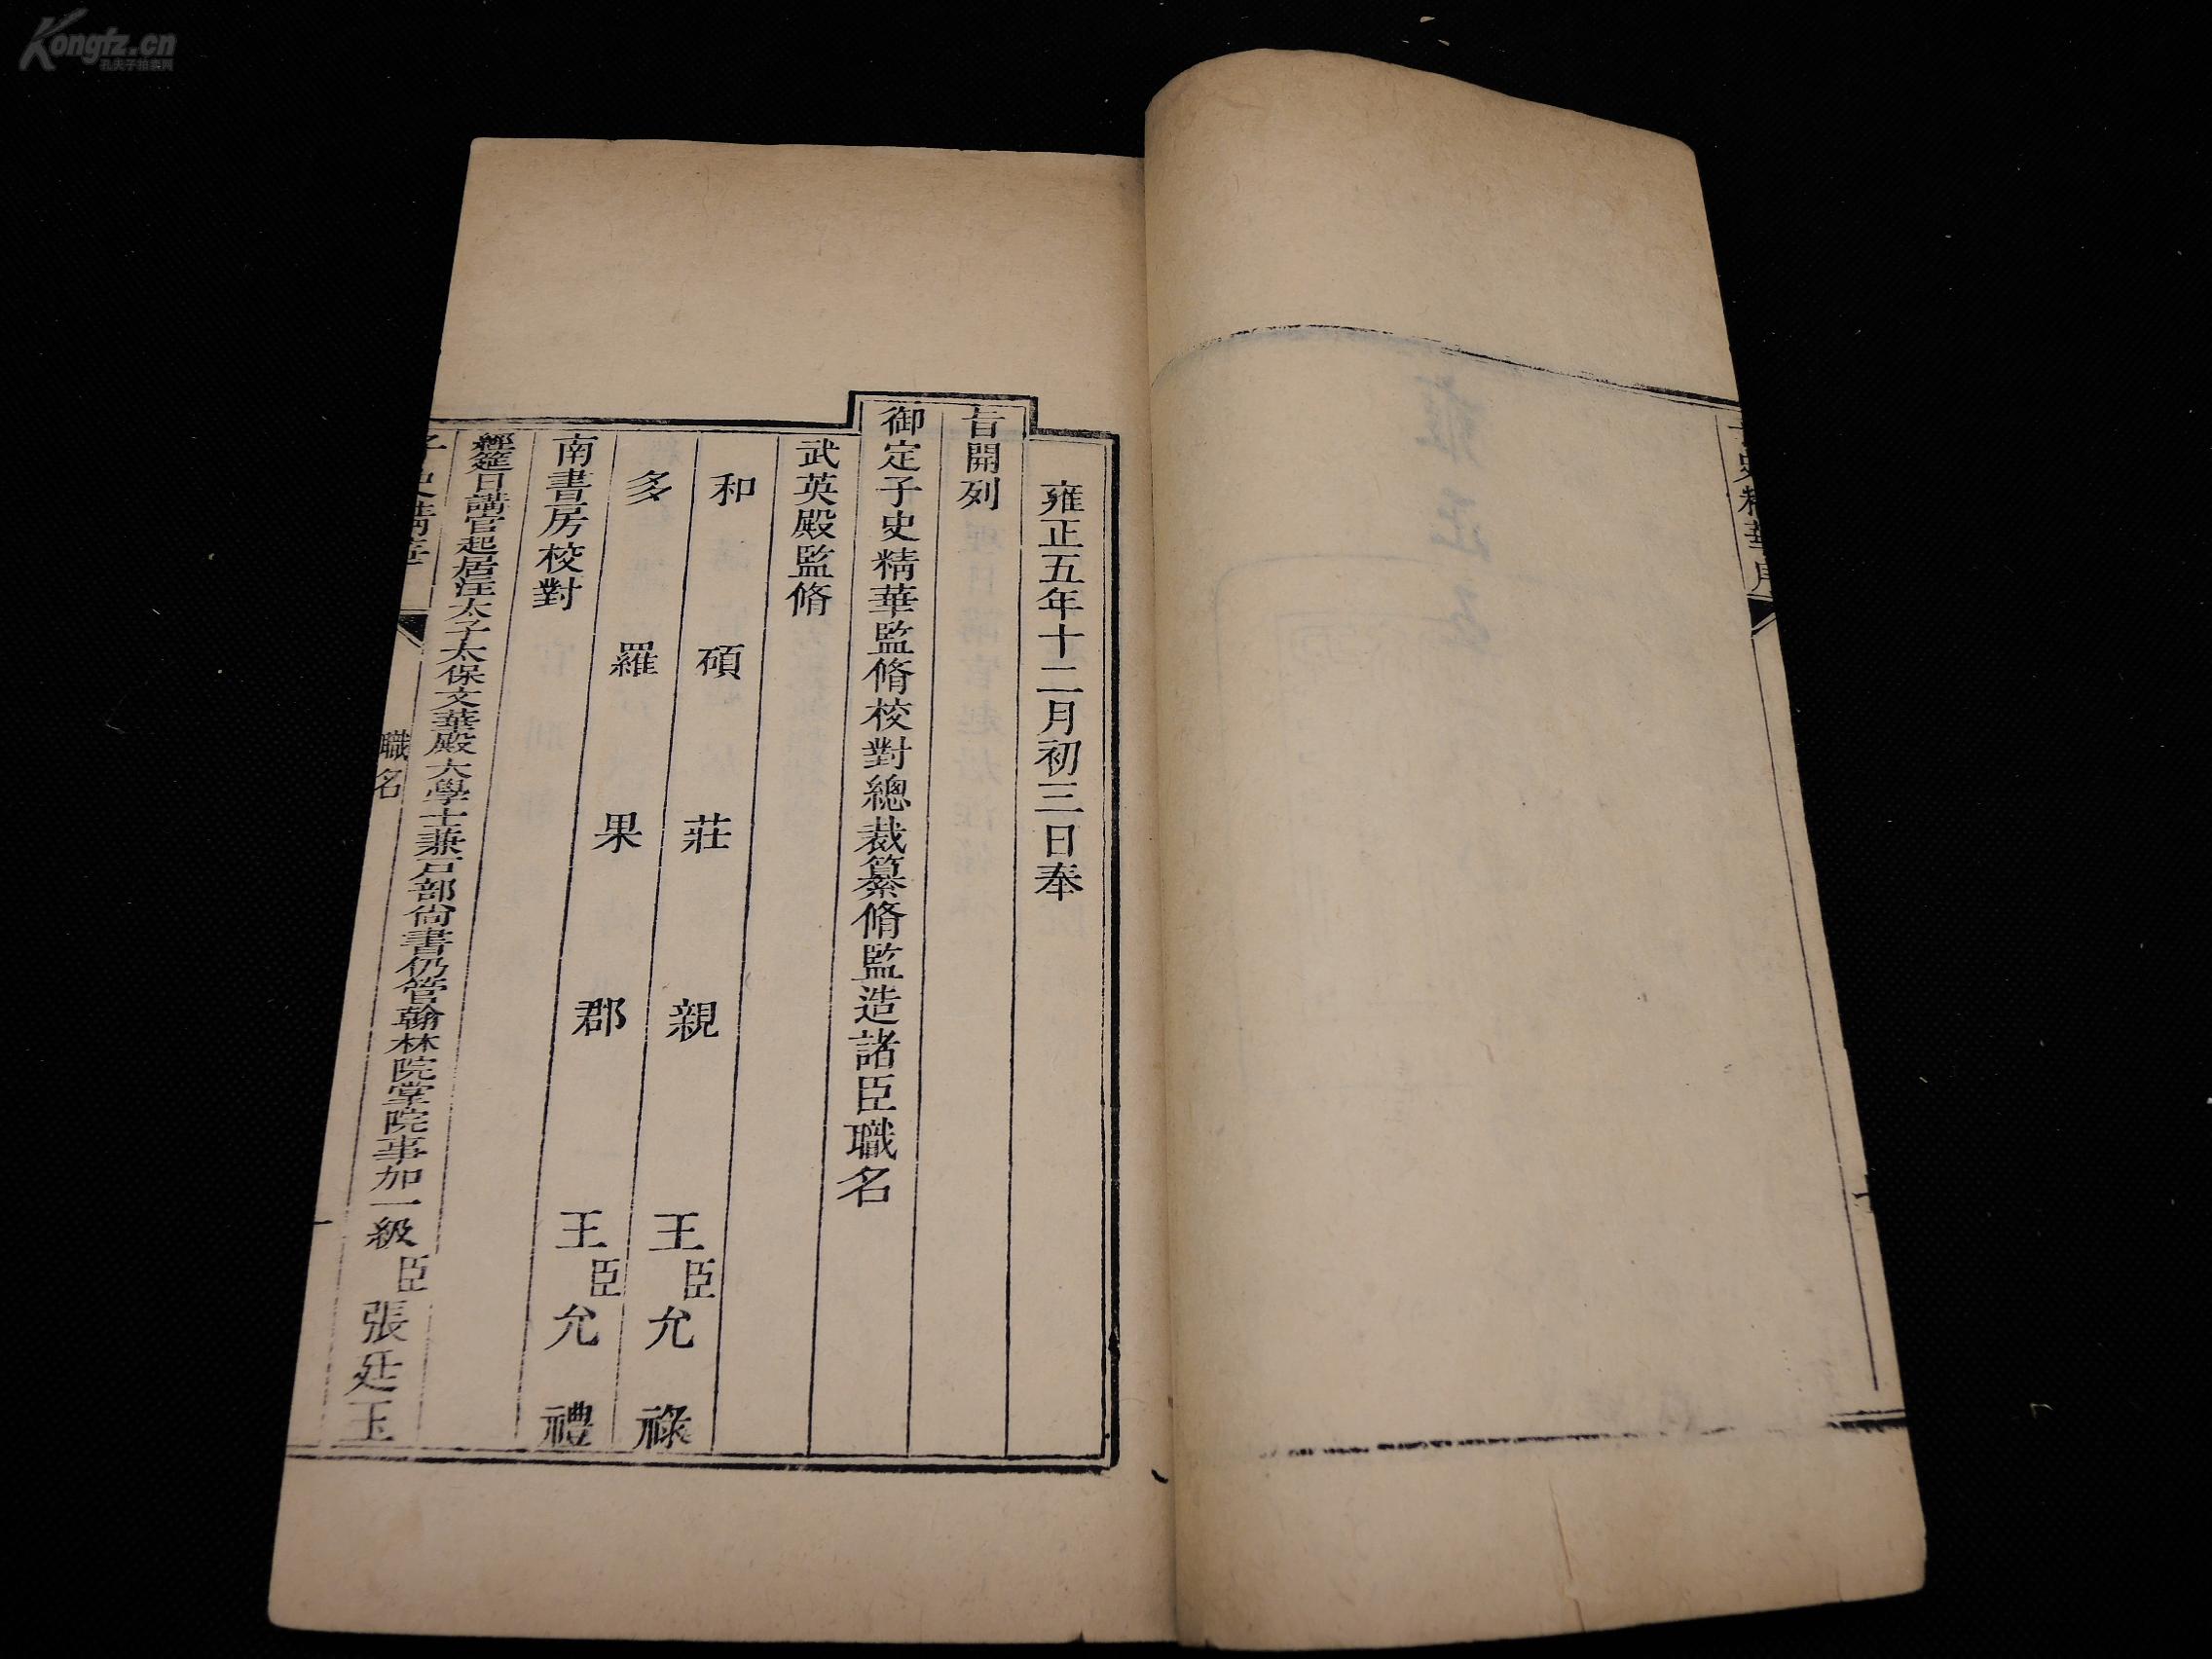 Kongfz.cn
孔夫子拍賣網
子史精華序
雍正五年十二月初三日奉
旨開列
御定子史精華監脩校對總裁纂脩監造諸臣職名
武英殿監脩
和碩莊親王臣允祿
多羅果郡王臣允禮
南書房校對
經筵日講官起居注太子太保文華殿大學士兼戶部尙書仍管翰林院掌院事加一級臣張廷玉
子史精華 職名 一